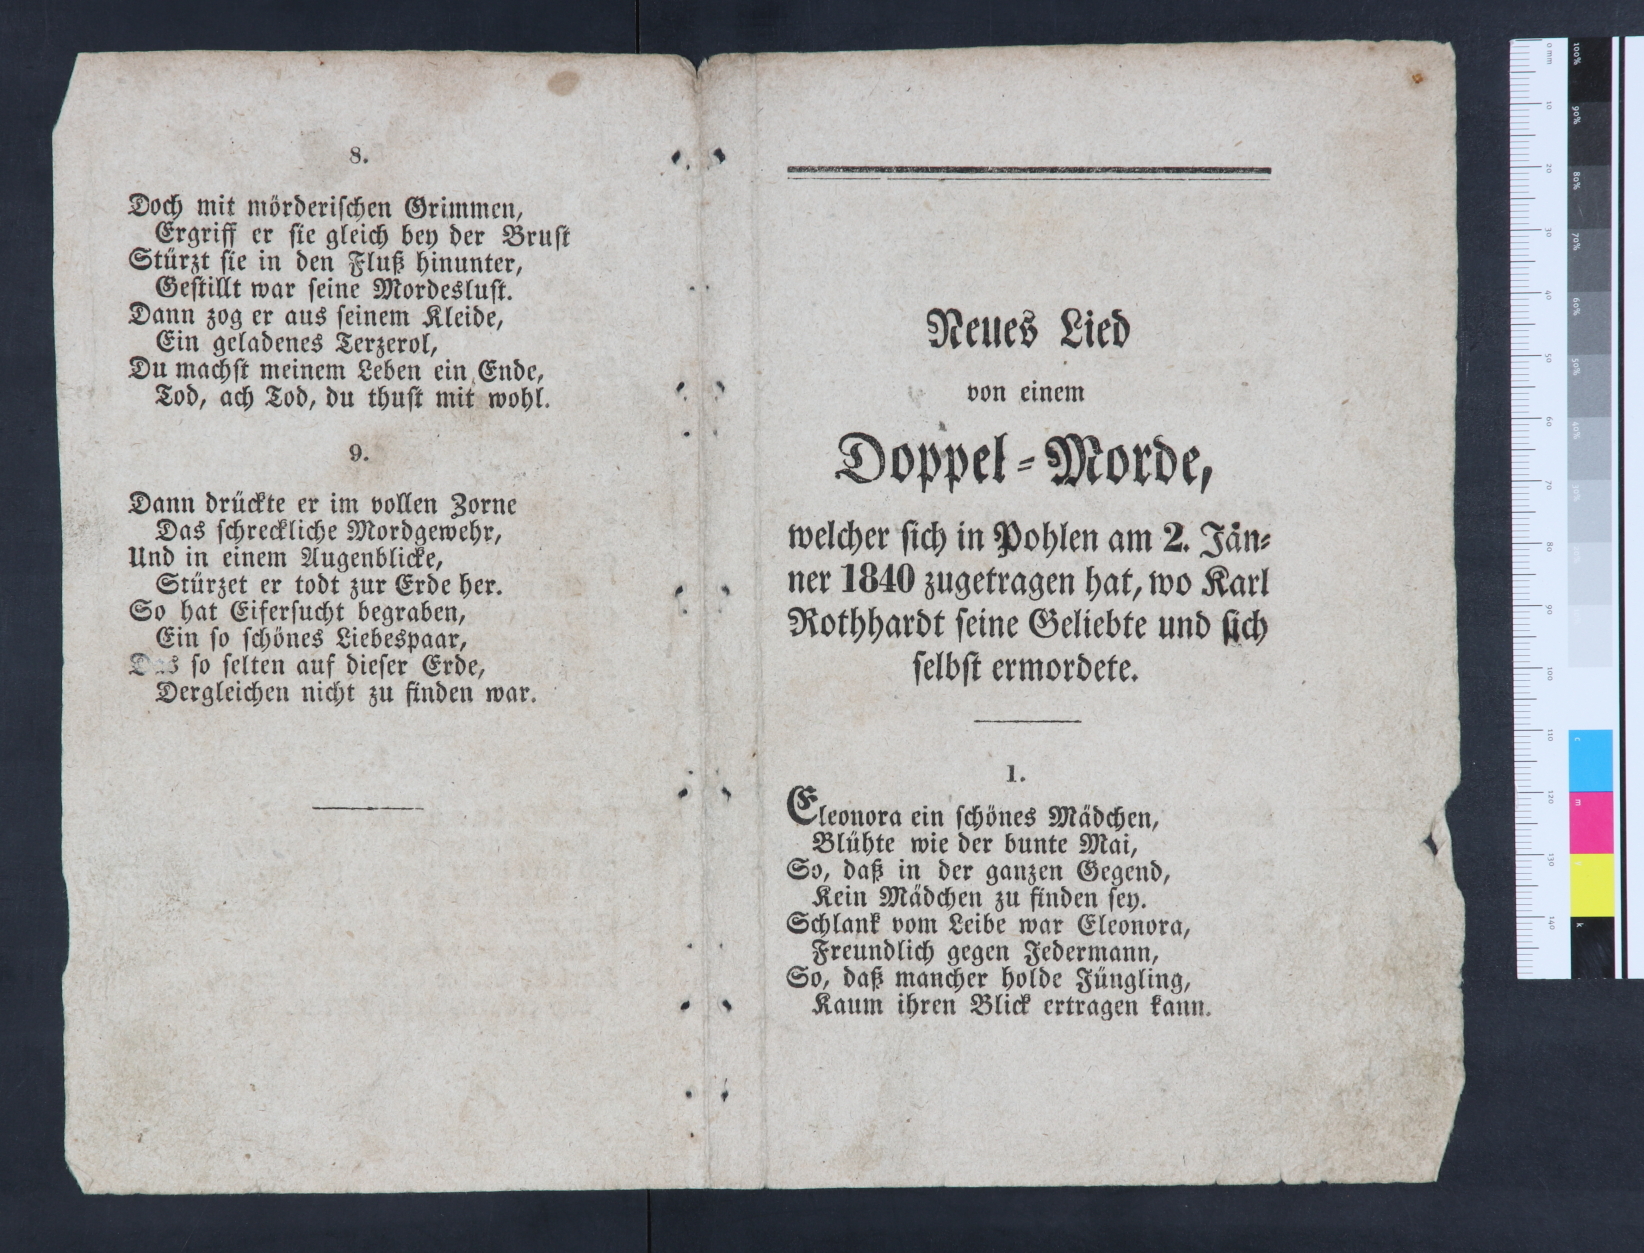 8.
Doch mit mörderiſchen Grimmen,
Ergriff er ſie gleich bey der Bruſt
Stürzt ſie in den Fluß hinunter,
Geſtillt war ſeine Mordesluſt.
Dann zog er aus ſeinem Kleide,
Ein geladenes Terzerol,
Du machſt meinem Leben ein Ende,
Tod, ach Tod, du thuſt mit wohl.
9.
Dann drückte er im vollen Zorne
Das ſchreckliche Mordgewehr,
Und in einem Augenblicke,
Stürzet er todt zur Erde her.
So hat Eiferſucht begraben,
Ein ſo ſchönes Liebespaar,
Das ſo ſelten auf dieſer Erde,
Dergleichen nicht zu finden war.
Neues Lied
von einem
Doppel-Morde,
welcher ſich in Pohlen am 2. Jän-
ner 1840 zugetragen hat, wo Karl
Rothhardt ſeine Geliebte und ſich
ſelbſt ermordete.
1.
Eleonora ein ſchönes Mädchen,
Blühte wie der bunte Mai,
So, daß in der ganzen Gegend,
Kein Mädchen zu finden ſey.
Schlank vom Leibe war Eleonora,
Freundlich gegen Jedermann,
So, daß mancher holde Jüngling,
Kaum ihren Blick ertragen kann.